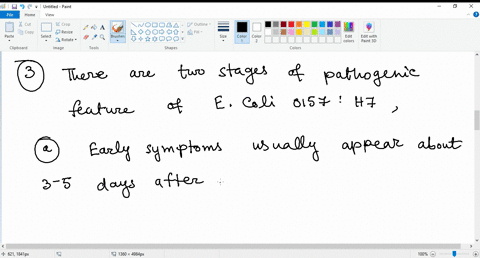 Untitled - Paint
File Home View
Paste
Select
Brushes
Outline
Fill
Size
Color 1
Color 2
Edit colors
Edit with Paint 3D
Clipboard Image Tools Shapes Colors
③ There are two stages of pathogenic
feature of E. Coli 0157 : H7 ,
ⓐ Early symptoms usually appear about
3-5 days after
621, 1841px
1380 × 4984px
100%